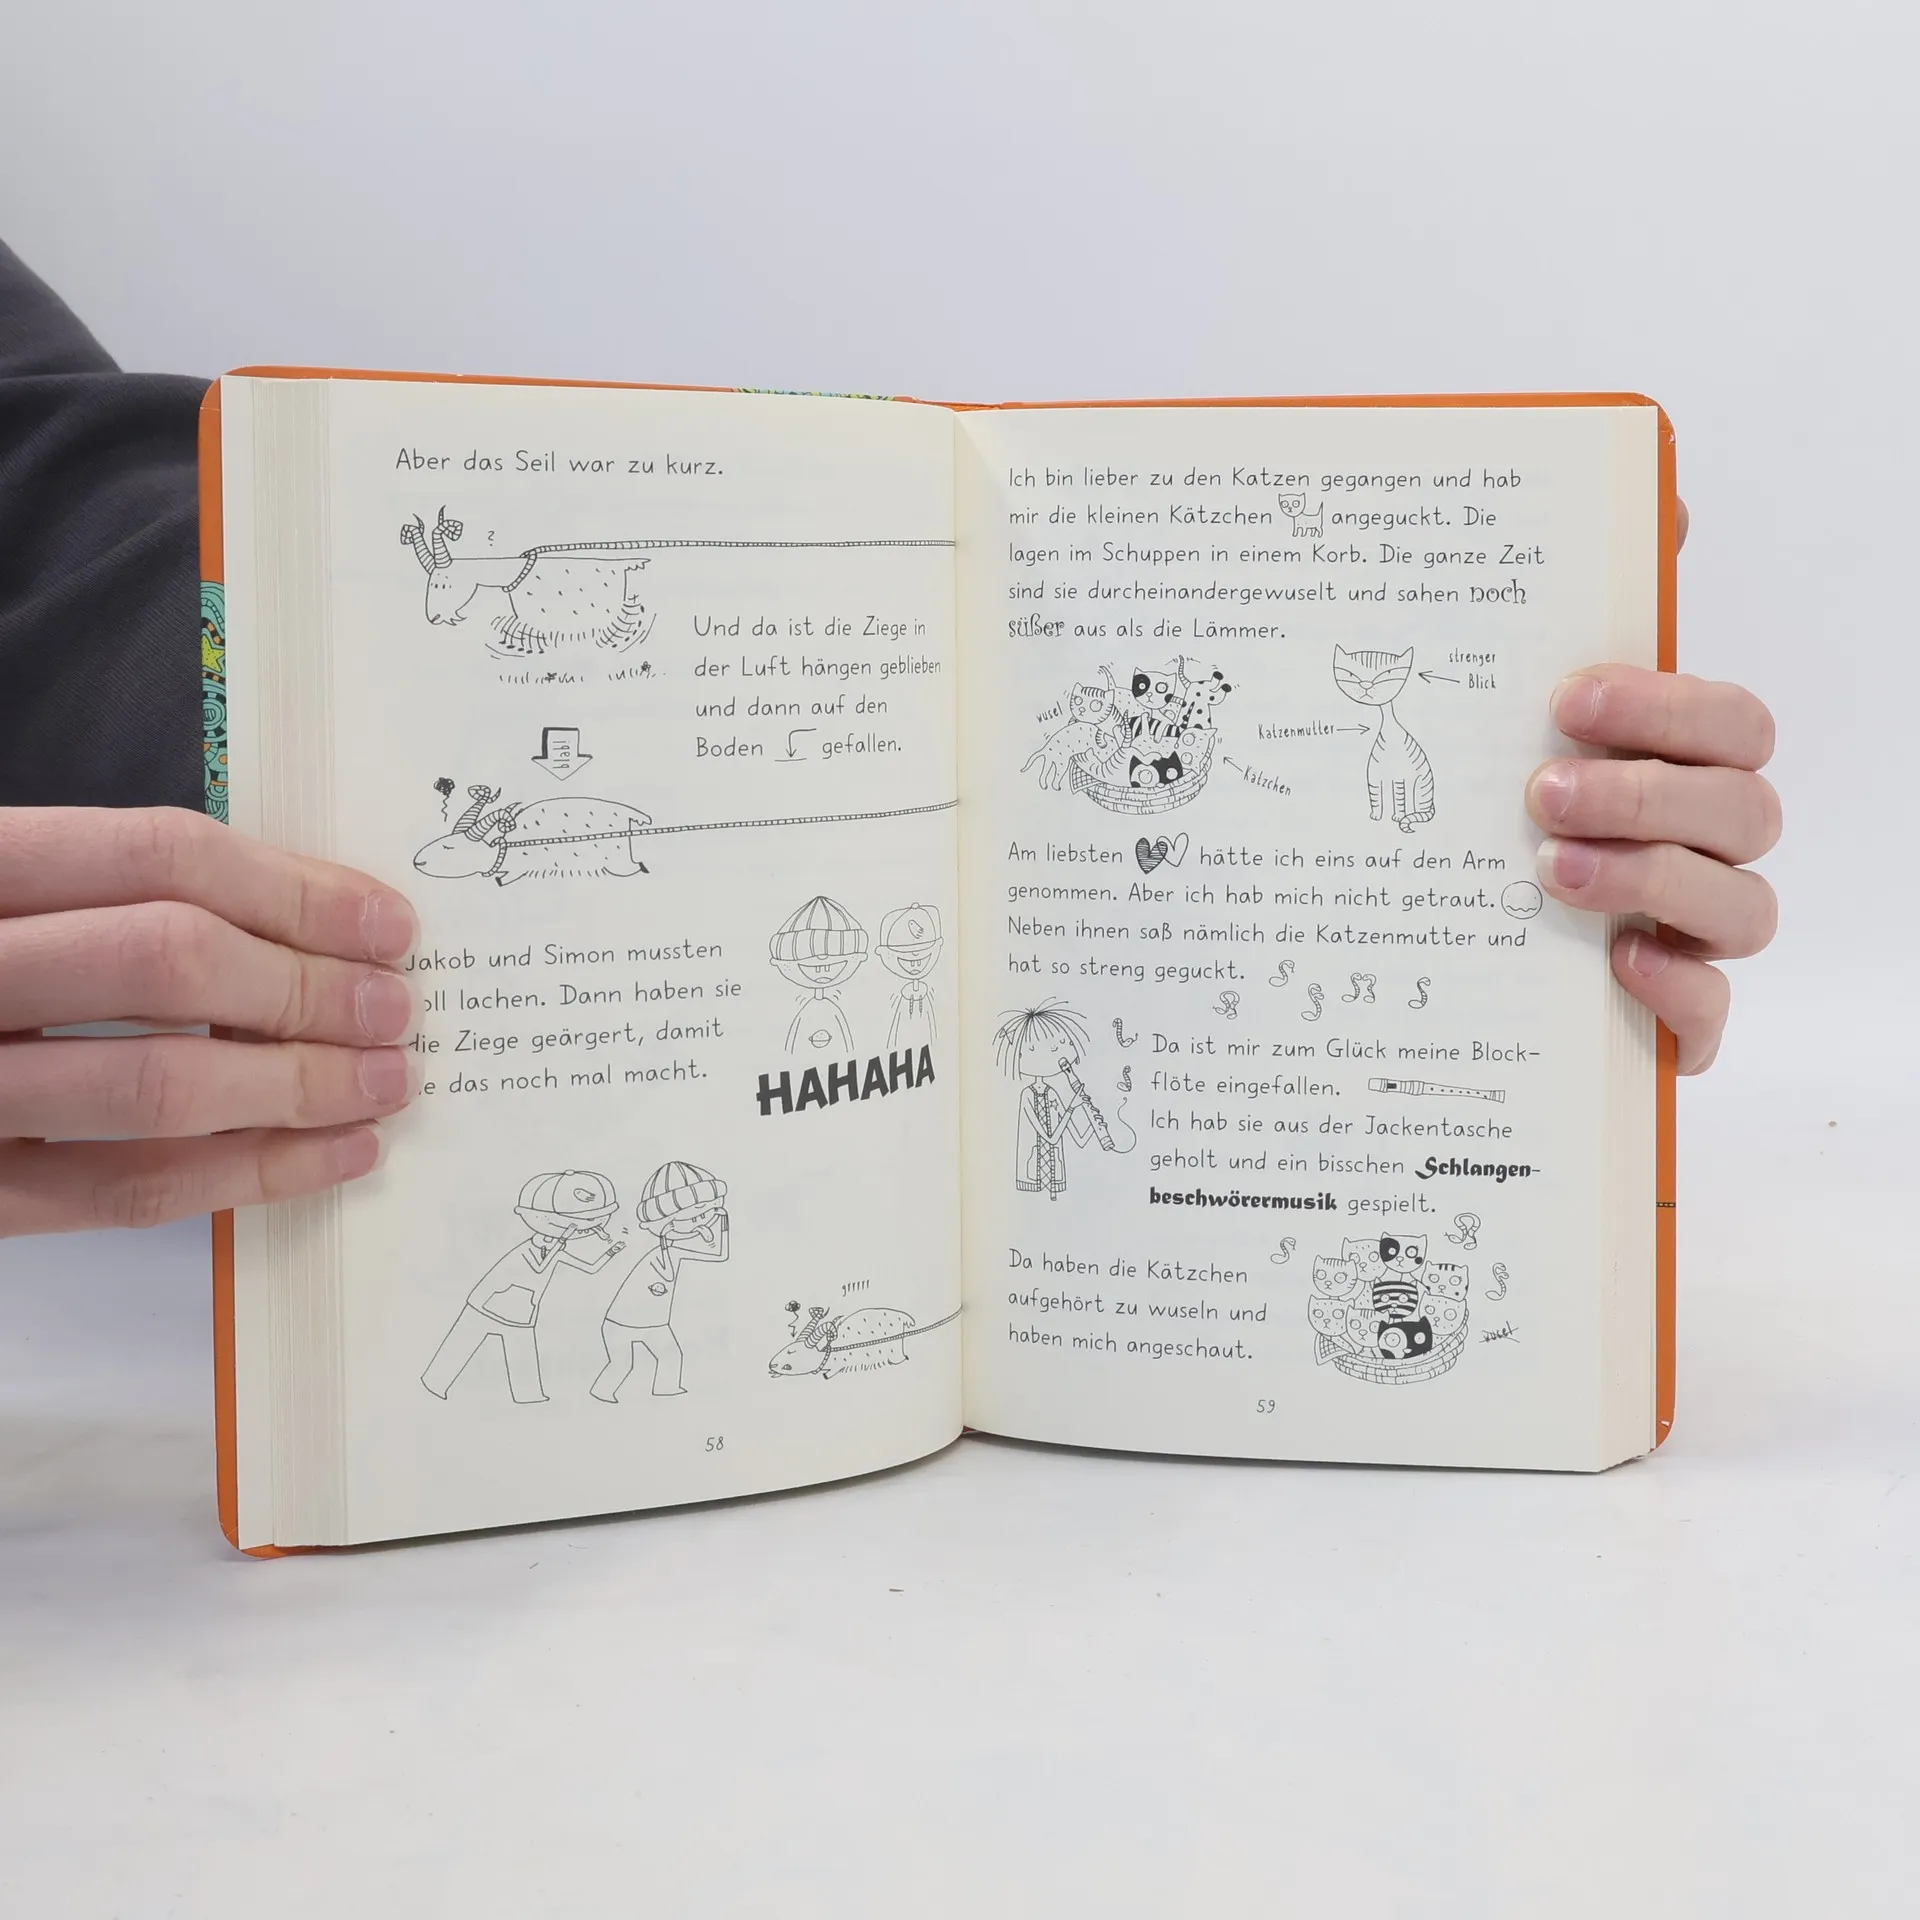 Aber das Seil war zu kurz.
?
Und da ist die Ziege in
der Luft hängen geblieben
und dann auf den
Boden gefallen.
Jakob und Simon mussten
lachen. Dann haben sie
Ziege geärgert, damit
das noch mal macht.
HAHAHA
grrrrr
58
Ich bin lieber zu den Katzen gegangen und hab
mir die kleinen Kätzchen angeguckt. Die
lagen im Schuppen in einem Korb. Die ganze Zeit
sind sie durcheinandergewuselt und sahen noch
süßer aus als die Lämmer.
wusel
strenger
Blick
Katzenmutter
Kätzchen
Am liebsten hätte ich eins auf den Arm
genommen. Aber ich hab mich nicht getraut.
Neben ihnen saß nämlich die Katzenmutter und
hat so streng geguckt.
Da ist mir zum Glück meine Block-
flöte eingefallen.
Ich hab sie aus der Jackentasche
geholt und ein bisschen Schlangen-
beschwörermusik gespielt.
Da haben die Kätzchen
aufgehört zu wuseln und
haben mich angeschaut.
wusel
59